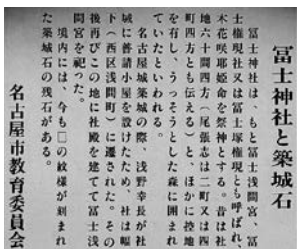 冨士神社と築城石
冨士神社は、もと冨士浅間宮、冨
士権現社又は冨士塚権現とも呼ばれ、
木花咲耶姫命を祭神とする。昔は社
地六十間四方(尾張志は二町又は四
町四方とも伝える)と、ほかに控地
を有し、うっそうとした森に囲まれ
ていたといわれる。
名古屋城築城の際、浅野幸長が社
域に普請小屋を設けたため、社は幅
下(西区浅間町)に遷された。その
後再びこの地に社殿を建てて冨士浅
間宮を祀った。
境内には、今も□の紋様が刻まれ
た築城石の残石がある。
名古屋市教育委員会